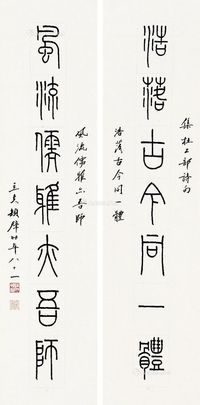 浩落古今同一體
集杜工部詩句
浩落古今同一體
風流儒雅亦吾師
風流儒雅亦吾師
年八十一